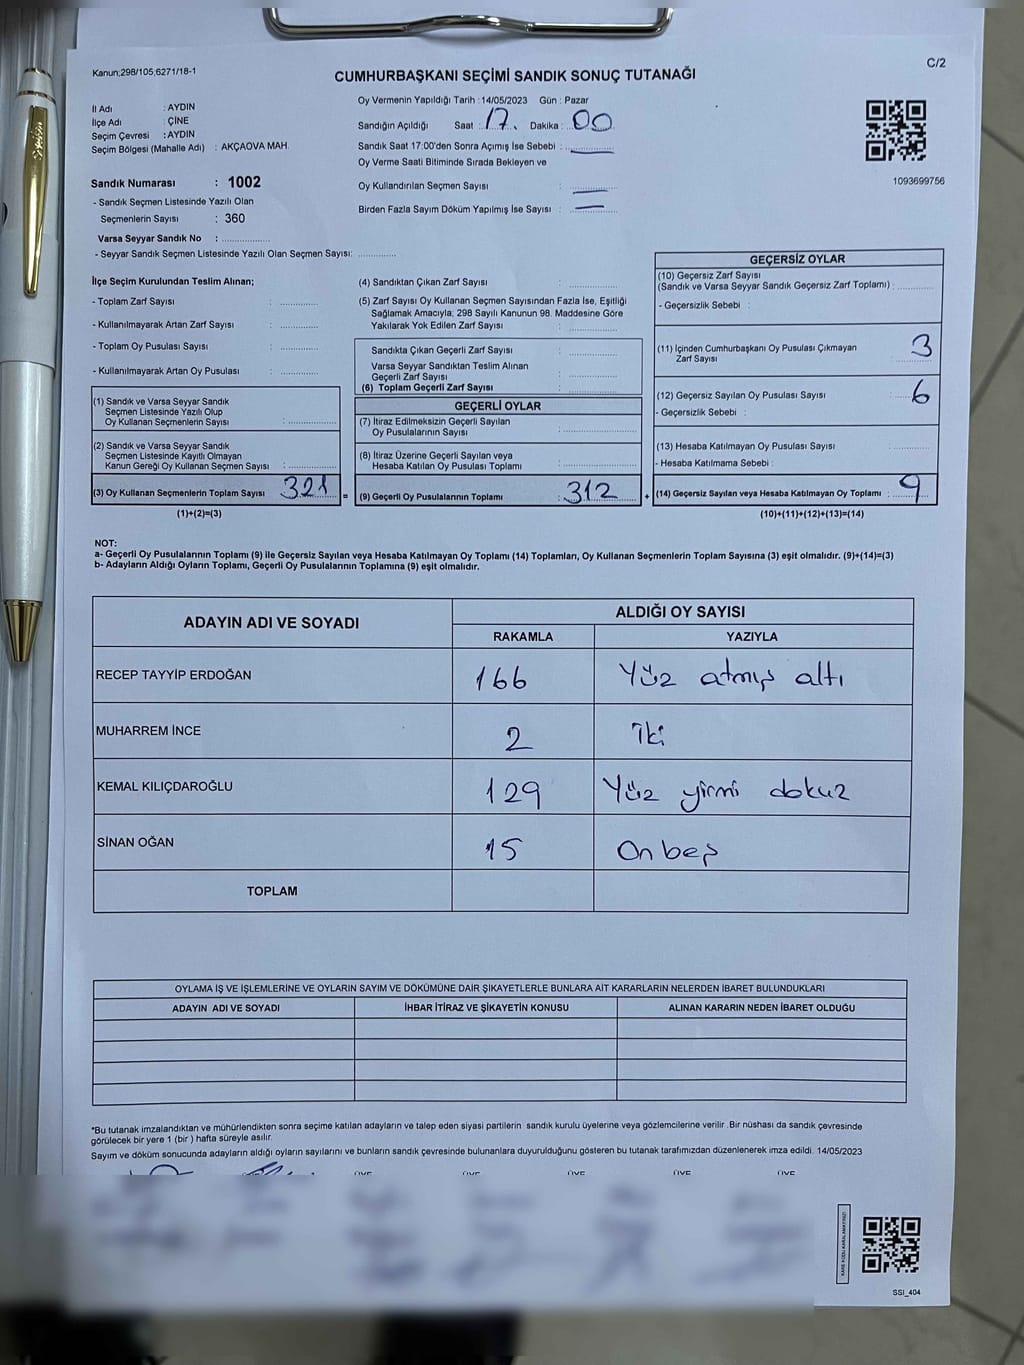 Kanun;298/105;6271/18-1
C/2
CUMHURBAŞKANI SEÇİMİ SANDIK SONUÇ TUTANAĞI
İl Adı : AYDIN
İlçe Adı : ÇİNE
Seçim Çevresi : AYDIN
Seçim Bölgesi (Mahalle Adı) : AKÇAOVA MAH.
Sandık Numarası : 1002
- Sandık Seçmen Listesinde Yazılı Olan
Seçmenlerin Sayısı : 360
Varsa Seyyar Sandık No :
- Seyyar Sandık Seçmen Listesinde Yazılı Olan Seçmen Sayısı:
Oy Vermenin Yapıldığı Tarih : 14/05/2023 Gün : Pazar
Sandığın Açıldığı Saat : 17. Dakika : 00
Sandık Saat 17:00'den Sonra Açımış İse Sebebi : —
Oy Verme Saati Bitiminde Sırada Bekleyen ve
Oy Kullandırılan Seçmen Sayısı : —
Birden Fazla Sayım Döküm Yapılmış İse Sayısı : —
1093699756
İlçe Seçim Kurulundan Teslim Alınan;
- Toplam Zarf Sayısı :
- Kullanılmayarak Artan Zarf Sayısı :
- Toplam Oy Pusulası Sayısı :
- Kullanılmayarak Artan Oy Pusulası :
(1) Sandık ve Varsa Seyyar Sandık
Seçmen Listesinde Yazılı Olup
Oy Kullanan Seçmenlerin Sayısı :
(2) Sandık ve Varsa Seyyar Sandık
Seçmen Listesinde Kayıtlı Olmayan
Kanun Gereği Oy Kullanan Seçmen Sayısı :
(3) Oy Kullanan Seçmenlerin Toplam Sayısı : 321 =
(1)+(2)=(3)
(4) Sandıktan Çıkan Zarf Sayısı :
(5) Zarf Sayısı Oy Kullanan Seçmen Sayısından Fazla İse, Eşitliği
Sağlamak Amacıyla; 298 Sayılı Kanunun 98. Maddesine Göre
Yakılarak Yok Edilen Zarf Sayısı :
Sandıkta Çıkan Geçerli Zarf Sayısı :
Varsa Seyyar Sandıktan Teslim Alınan
Geçerli Zarf Sayısı :
(6) Toplam Geçerli Zarf Sayısı :
GEÇERLİ OYLAR
(7) İtiraz Edilmeksizin Geçerli Sayılan
Oy Pusulalarının Sayısı :
(8) İtiraz Üzerine Geçerli Sayılan veya
Hesaba Katılan Oy Pusulası Toplamı :
(9) Geçerli Oy Pusulalarının Toplamı : 312 +
GEÇERSİZ OYLAR
(10) Geçersiz Zarf Sayısı
(Sandık ve Varsa Seyyar Sandık Geçersiz Zarf Toplamı) :
- Geçersizlik Sebebi :
(11) İçinden Cumhurbaşkanı Oy Pusulası Çıkmayan
Zarf Sayısı : 3
(12) Geçersiz Sayılan Oy Pusulası Sayısı : 6
- Geçersizlik Sebebi :
(13) Hesaba Katılmayan Oy Pusulası Sayısı :
- Hesaba Katılmama Sebebi :
(14) Geçersiz Sayılan veya Hesaba Katılmayan Oy Toplamı : 9
(10)+(11)+(12)+(13)=(14)
NOT:
a- Geçerli Oy Pusulalarının Toplamı (9) ile Geçersiz Sayılan veya Hesaba Katılmayan Oy Toplamı (14) Toplamları, Oy Kullanan Seçmenlerin Toplam Sayısına (3) eşit olmalıdır. (9)+(14)=(3)
b- Adayların Aldığı Oyların Toplamı, Geçerli Oy Pusulalarının Toplamına (9) eşit olmalıdır.
ADAYIN ADI VE SOYADI
ALDIĞI OY SAYISI
RAKAMLA YAZIYLA
RECEP TAYYİP ERDOĞAN 166 Yüz atmış altı
MUHARREM İNCE 2 İki
KEMAL KILIÇDAROĞLU 129 Yüz yirmi dokuz
SİNAN OĞAN 15 On beş
TOPLAM
OYLAMA İŞ VE İŞLEMLERİNE VE OYLARIN SAYIM VE DÖKÜMÜNE DAİR ŞİKAYETLERLE BUNLARA AİT KARARLARIN NELERDEN İBARET BULUNDUKLARI
ADAYIN ADI VE SOYADI İHBAR İTİRAZ VE ŞİKAYETİN KONUSU ALINAN KARARIN NEDEN İBARET OLDUĞU
*Bu tutanak imzalandıktan ve mühürlendikten sonra seçime katılan adayların ve talep eden siyasi partilerin sandık kurulu üyelerine veya gözlemcilerine verilir. Bir nüshası da sandık çevresinde
görülecek bir yere 1 (bir ) hafta süreyle asılır.
Sayım ve döküm sonucunda adayların aldığı oyların sayılarını ve bunların sandık çevresinde bulunanlara duyurulduğunu gösteren bu tutanak tarafımızdan düzenlenerek imza edildi. 14/05/2023
ÜYE ÜYE ÜYE ÜYE ÜYE
SSI_404